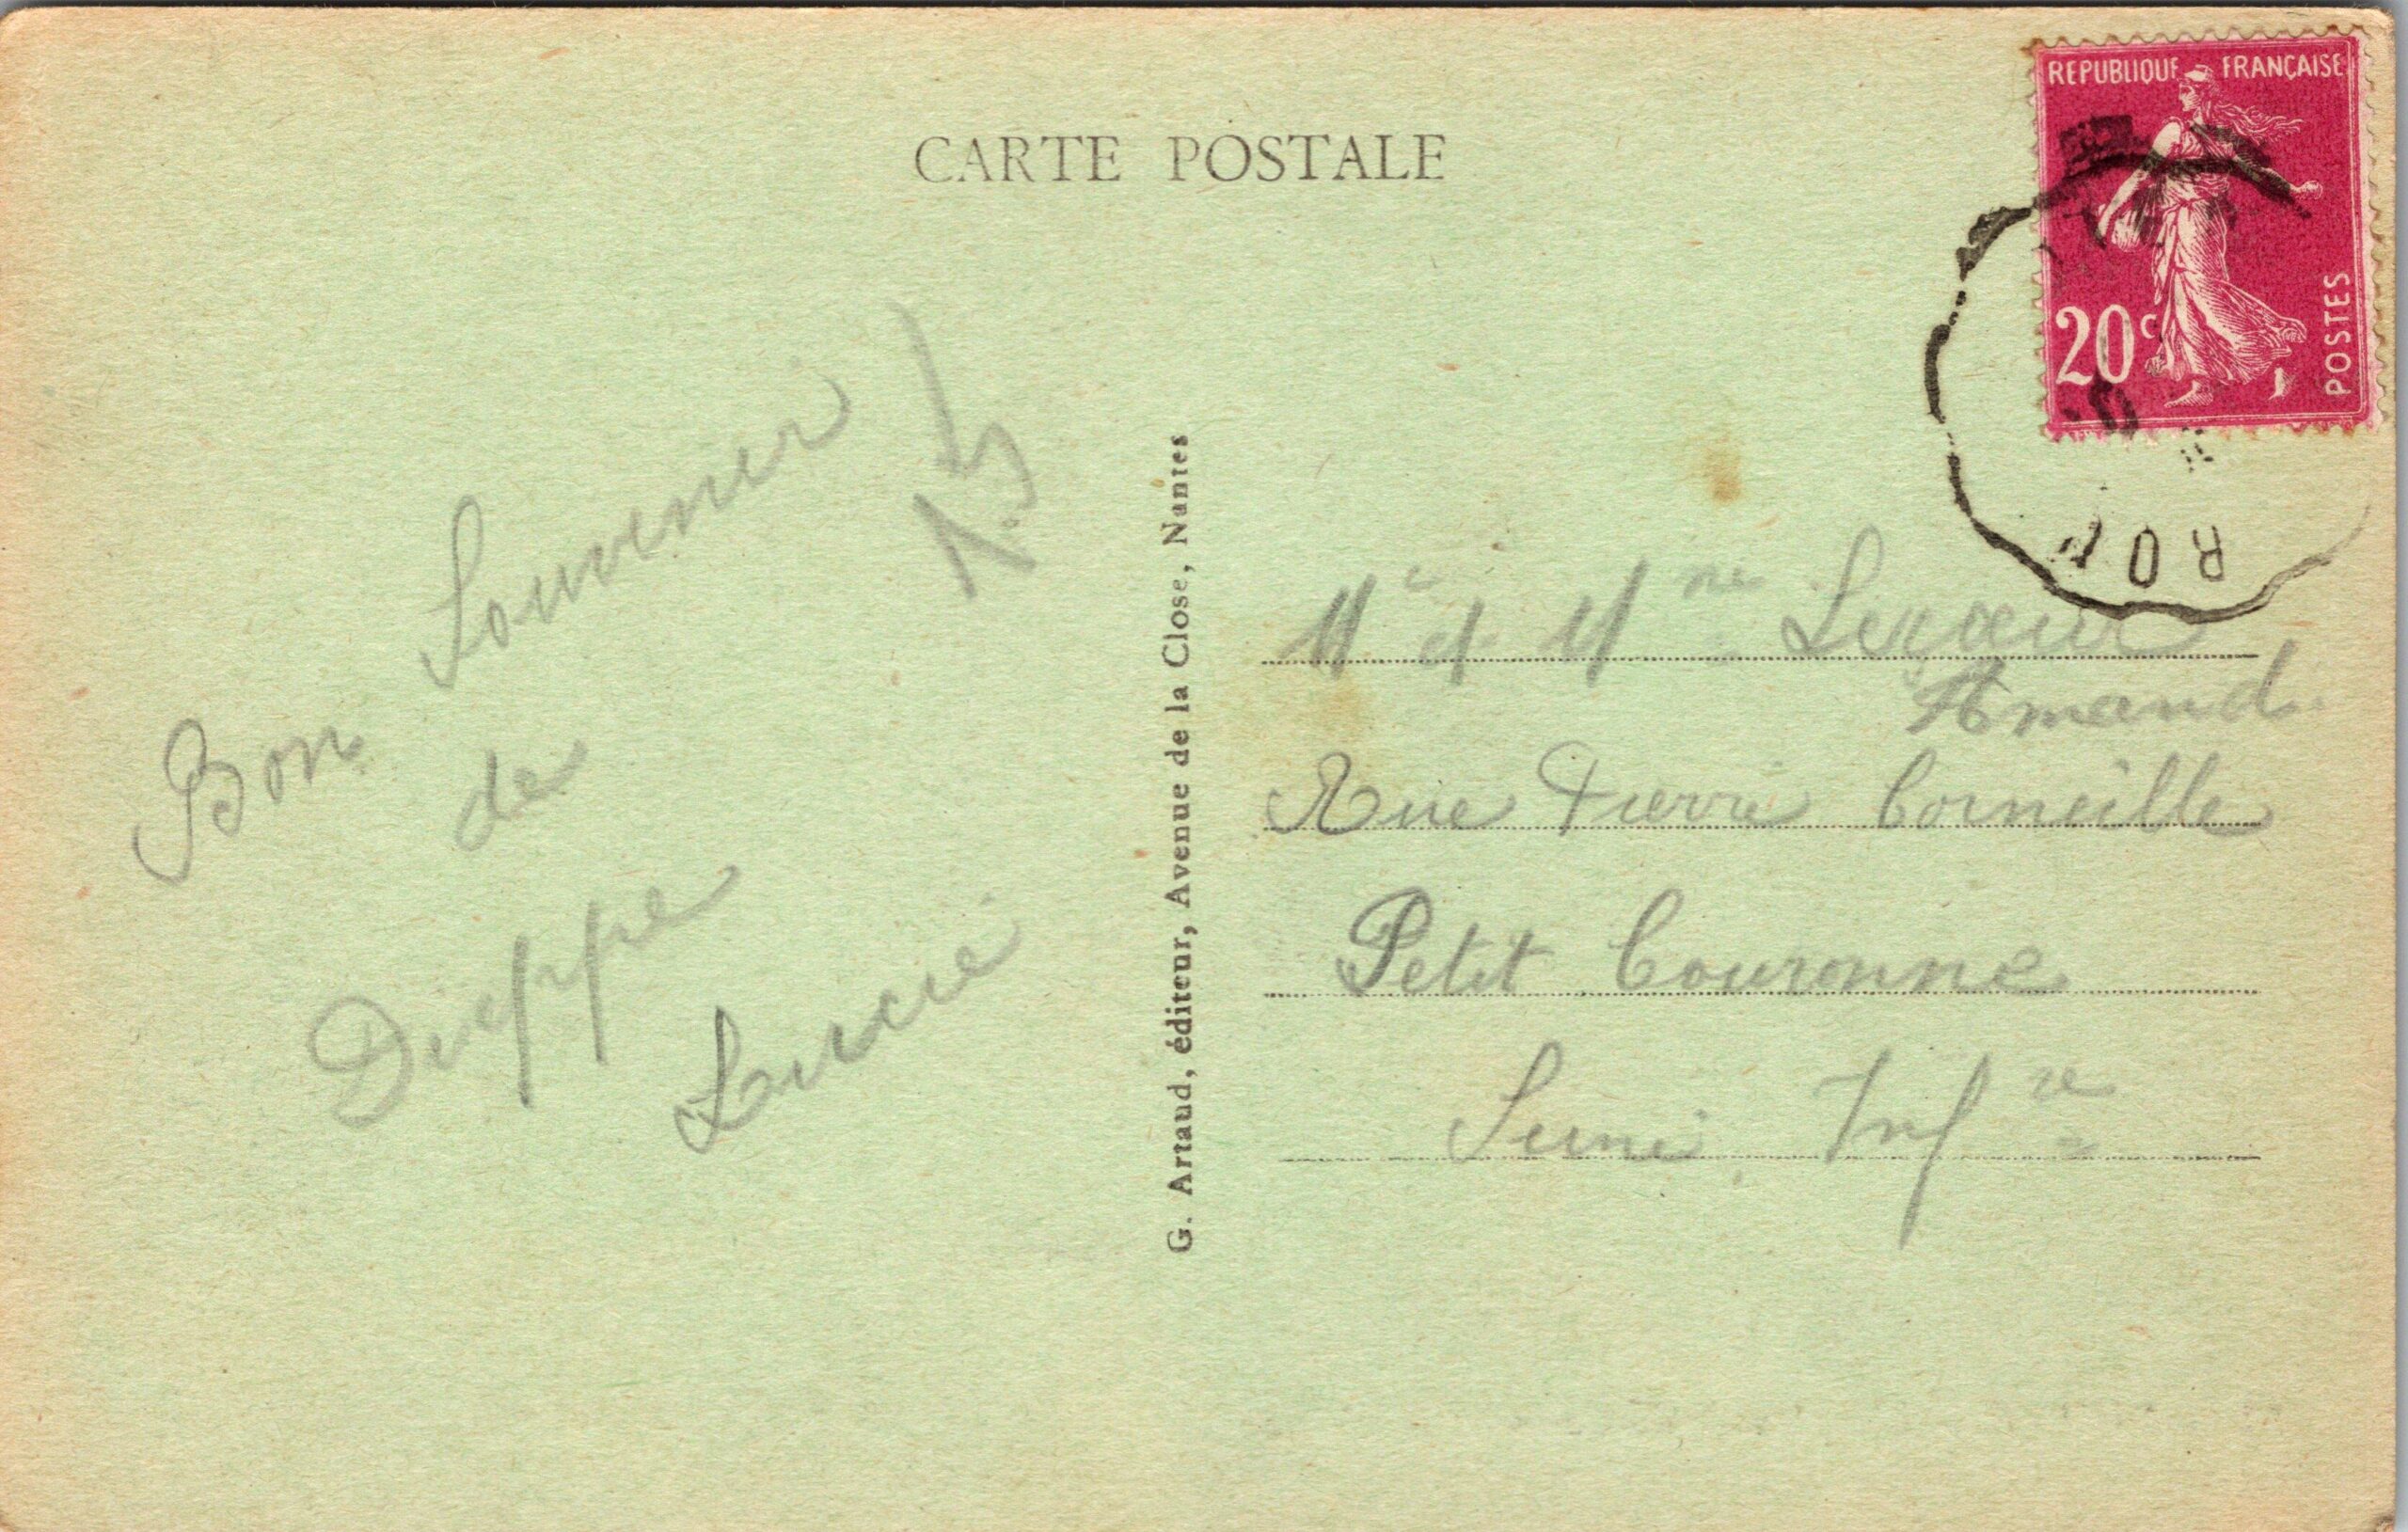 CARTE POSTALE
REPUBLIQUE FRANÇAISE
20c
POSTES
Bon Souvenir
de
Dieppe
Lucie
G. Artaud, éditeur, Avenue de la Close, Nantes
Mr et Mme Lecœur
Amand
Rue Pierre Corneille
Petit Couronne
Seine Infre